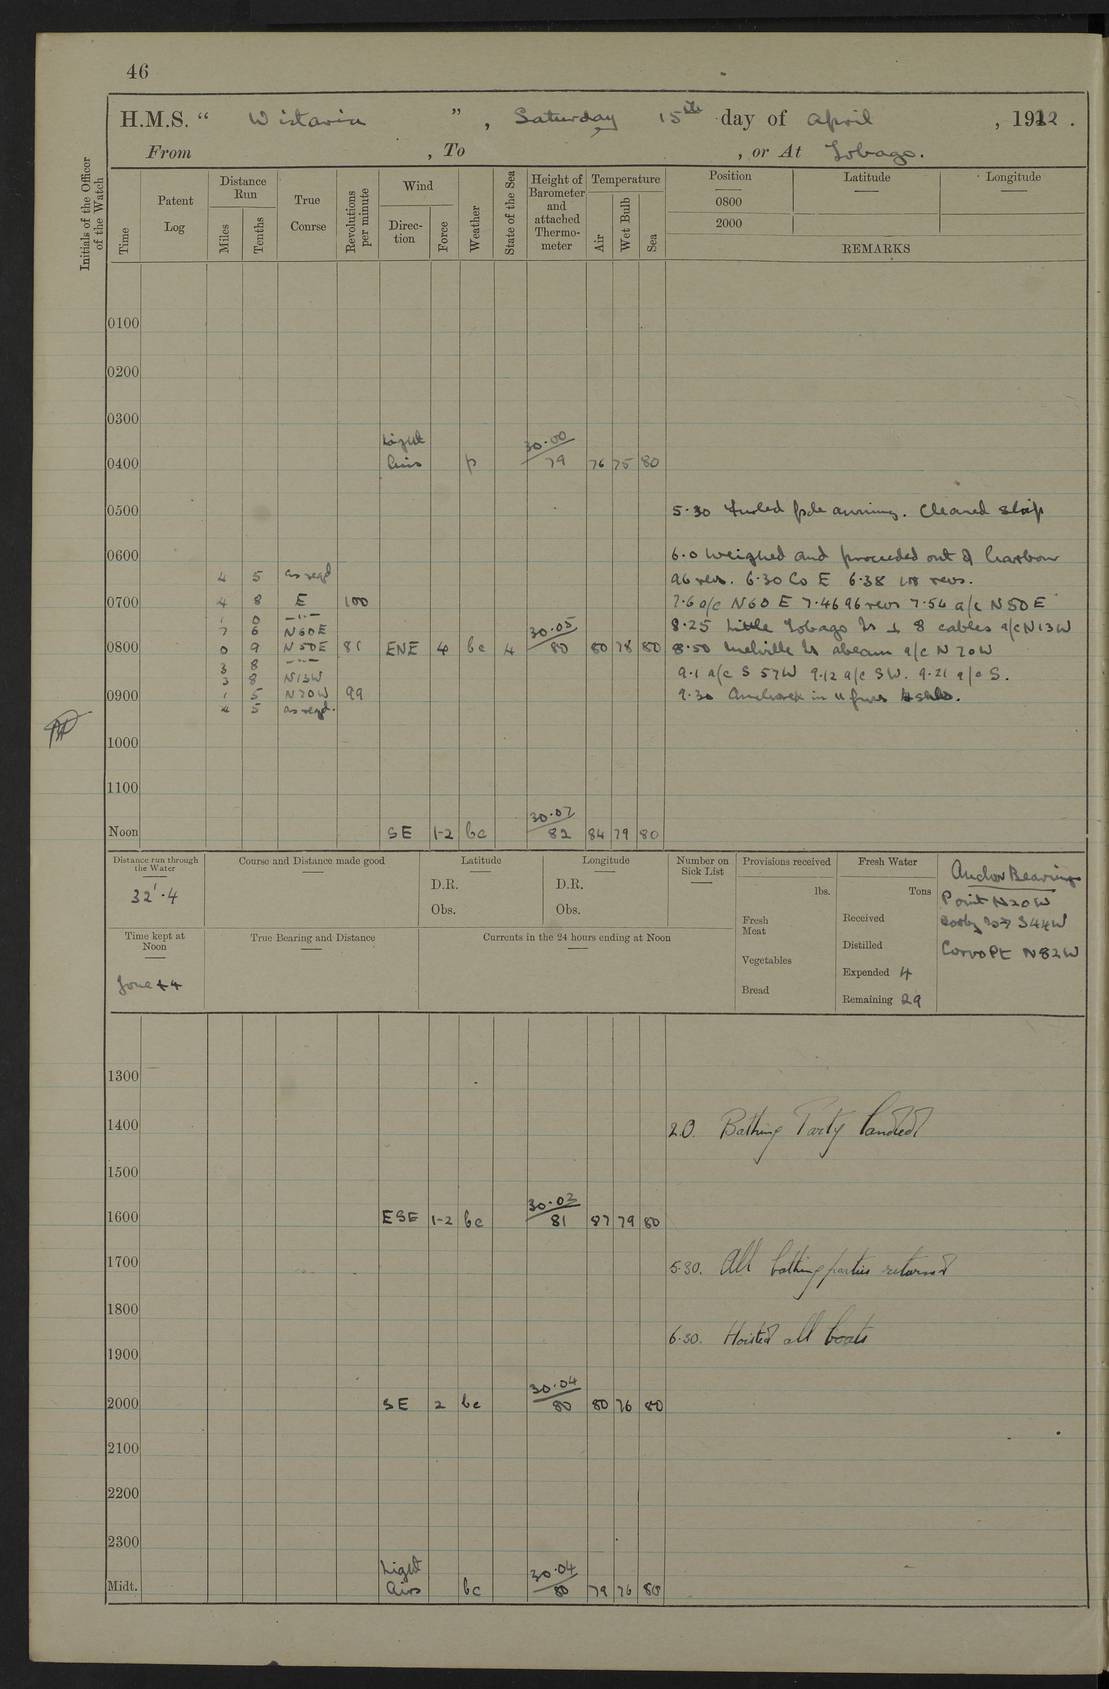 46
H.M.S. “ Wistaria ” , Saturday 15th day of April , 1922 .
From , To , or At Tobago.
Initials of the Officer of the Watch
Time
Patent Log
Distance Run
Miles
Tenths
True Course
Revolutions per minute
Wind
Direc-tion
Force
Weather
State of the Sea
Height of Barometer and attached Thermo-meter
Temperature
Air
Wet Bulb
Sea
Position
0800
2000
Latitude
Longitude
REMARKS
0100
0200
0300
Light 30.00
0400 airs p 79 76 75 80
0500 5.30 Furled awning. Cleared ship
0600 6.0 Weighed and proceeded out of harbour
4 5 as reqd 96 revs. 6.30 Co E 6.38 revs.
0700 4 8 E 100 7.6 a/c N60E 7.46 96 revs 7.54 a/c N50E
1 0 —"—
7 6 N60E 30.05 8.25 Little Tobago Is ⊥ 8 cables a/c N13W
0800 0 9 N50E 81 ENE 4 bc 4 80 80 78 80 8.50 Melville Is abeam a/c N70W
3 8 —"—
3 8 N13W 9.1 a/c S57W 9.12 a/c SW. 9.21 a/c S.
0900 1 5 N70W 99 9.30 Anchored in 11 fms
4 5 as reqd.
1000
1100
30.07
Noon SE 1-2 bc 82 84 79 80
Distance run through the Water
32'.4
Course and Distance made good
Latitude
D.R.
Obs.
Longitude
D.R.
Obs.
Number on Sick List
Provisions received
lbs.
Fresh Meat
Vegetables
Bread
Fresh Water
Tons
Received
Distilled
Expended 4
Remaining 29
Anchor Bearings
Point N20W
Booby S44W
Corvo Pt N82W
Time kept at Noon
Zone +4
True Bearing and Distance
Currents in the 24 hours ending at Noon
1300
1400 2.0. Bathing Party landed
1500
30.03
1600 ESE 1-2 bc 81 87 79 80
1700 5.30. All bathing parties returned
1800
6.30. Hoisted all boats
1900
30.04
2000 SE 2 bc 80 80 76 80
2100
2200
2300
Light 30.04
Midt. airs bc 80 79 76 80